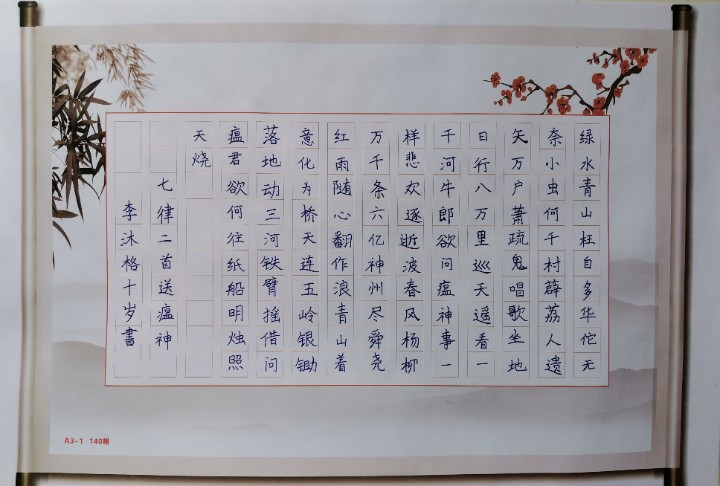 绿水青山枉自多华佗无
奈小虫何千村薜荔人遗
矢万户萧疏鬼唱歌坐地
日行八万里巡天遥看一
千河牛郎欲问瘟神事一
样悲欢逐逝波春风杨柳
万千条六亿神州尽舜尧
红雨随心翻作浪青山着
意化为桥天连五岭银锄
落地动三河铁臂摇借问
瘟君欲何往纸船明烛照
天烧
七律二首送瘟神
李沐格十岁書
A3-1 140格